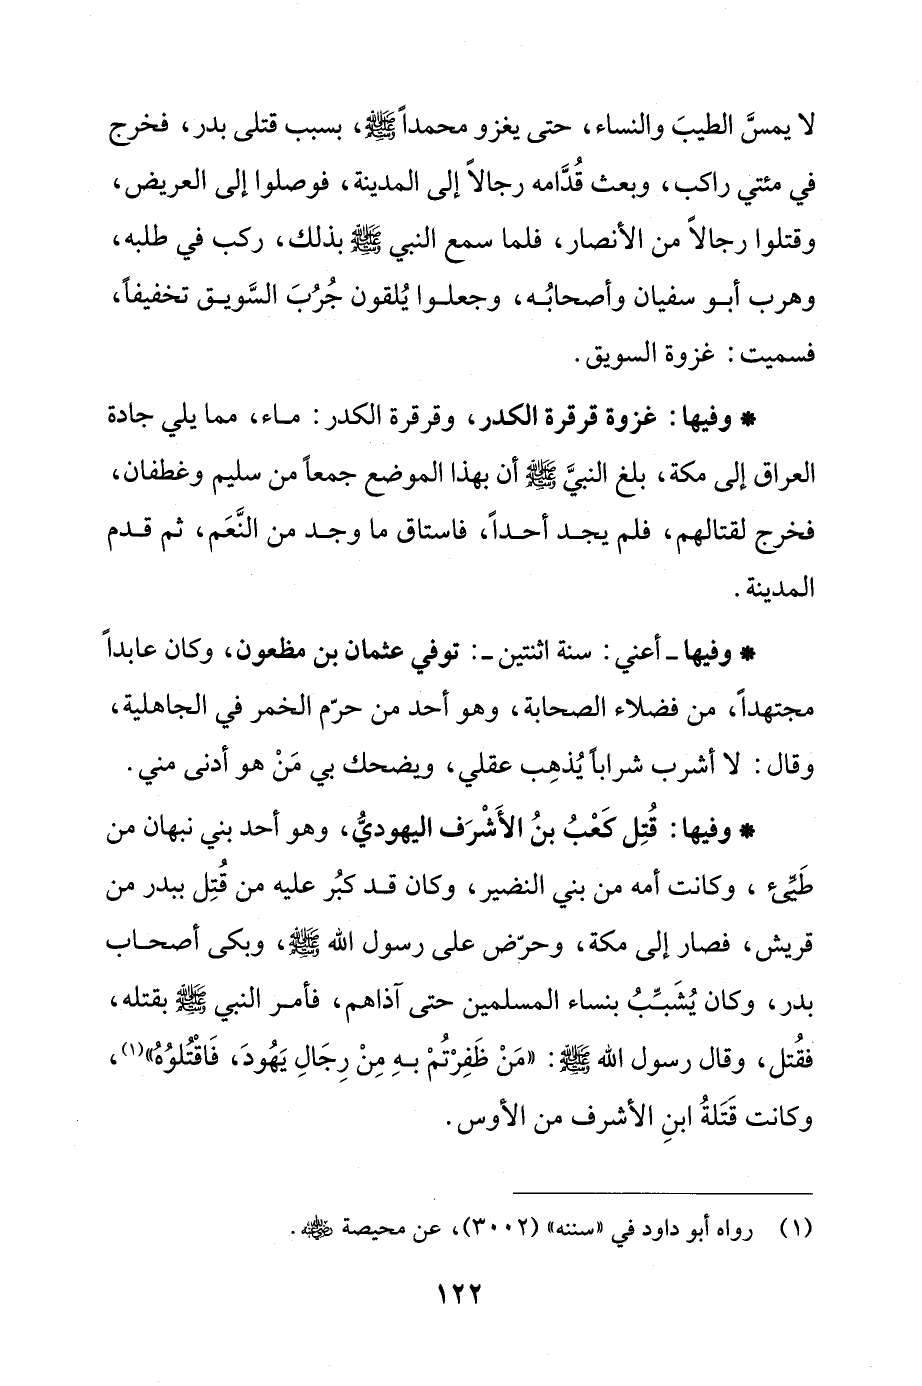 لا يمسَّ الطيبَ والنساء، حتى يغزو محمداً ﷺ، بسبب قتلى بدر، فخرج
في مئتي راكب، وبعث قُدَّامه رجالاً إلى المدينة، فوصلوا إلى العريض،
وقتلوا رجالاً من الأنصار، فلما سمع النبي ﷺ بذلك، ركب في طلبه،
وهرب أبو سفيان وأصحابُه، وجعلوا يُلقون جُرُبَ السَّويق تخفيفاً،
فسميت: غزوة السويق.
* وفيها: غزوة قرقرة الكدر، وقرقرة الكدر: ماء، مما يلي جادة
العراق إلى مكة، بلغ النبيَّ ﷺ أن بهذا الموضع جمعاً من سليم وغطفان،
فخرج لقتالهم، فلم يجد أحداً، فاستاق ما وجد من النَّعَم، ثم قدم
المدينة.
* وفيها ـ أعني: سنة اثنتين ـ: توفي عثمان بن مظعون، وكان عابداً
مجتهداً، من فضلاء الصحابة، وهو أحد من حرّم الخمر في الجاهلية،
وقال: لا أشرب شراباً يُذهِب عقلي، ويضحك بي مَنْ هو أدنى مني.
* وفيها: قُتِل كَعْبُ بنُ الأَشْرَف اليهوديُّ، وهو أحد بني نبهان من
طَيِّئ، وكانت أمه من بني النضير، وكان قد كبُر عليه من قُتِل ببدر من
قريش، فصار إلى مكة، وحرّض على رسول الله ﷺ، وبكى أصحاب
بدر، وكان يُشَبِّبُ بنساء المسلمين حتى آذاهم، فأمر النبي ﷺ بقتله،
فقُتل، وقال رسول الله ﷺ: «مَنْ ظَفِرْتُمْ بِهِ مِنْ رِجَالِ يَهُودَ، فَاقْتُلُوهُ»(١)،
وكانت قَتَلَةُ ابنِ الأشرف من الأوس.
(١) رواه أبو داود في «سننه» (٣٠٠٢)، عن محيصة رضي الله عنه.
١٢٢